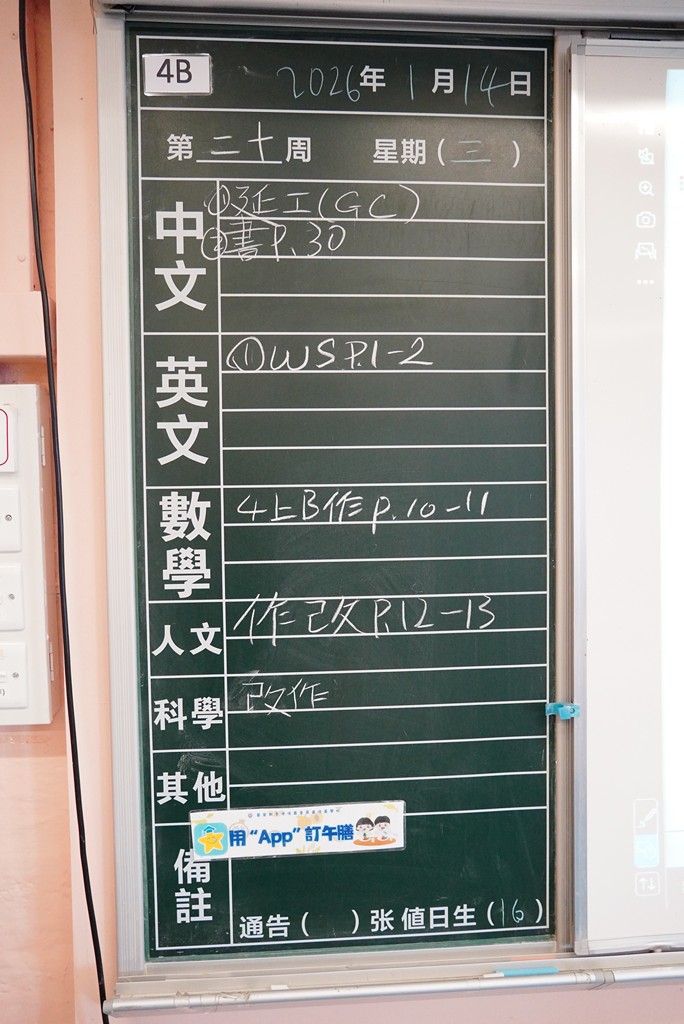 4B
2026年1月14日
第二十周 星期(三)
中文
①延工(GC)
②書P.30
英文
①WS P.1-2
數學
4上B作p.10-11
人文
作改P.12-13
科學
改作
其他
用“App”訂午膳
備註
通告( )张 值日生(16)